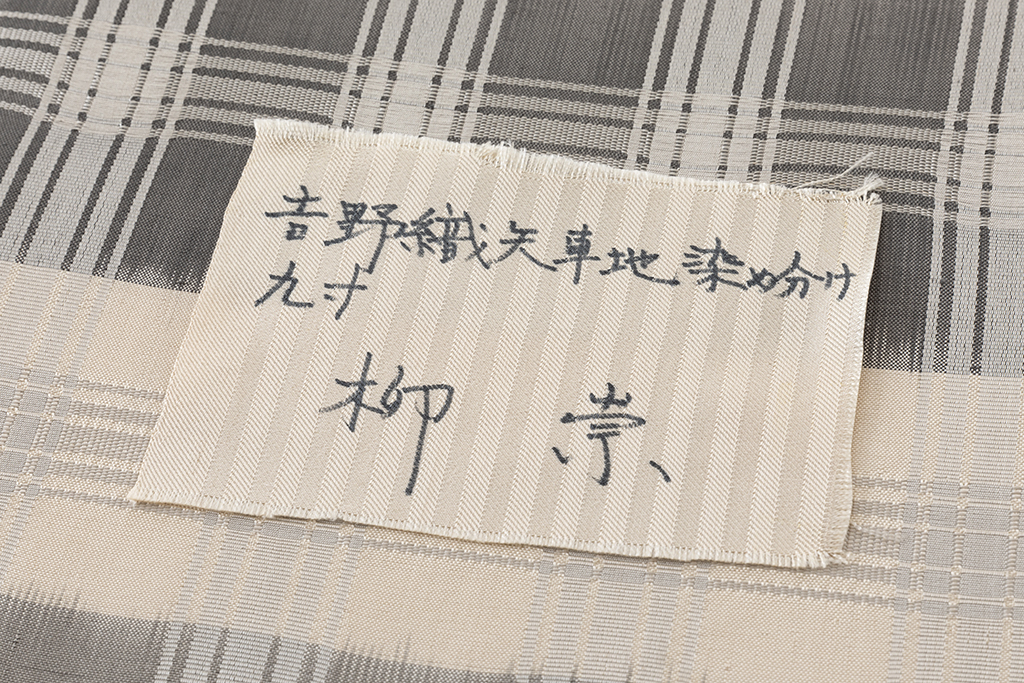 吉野織矢車地染め分け
九寸
柳 崇